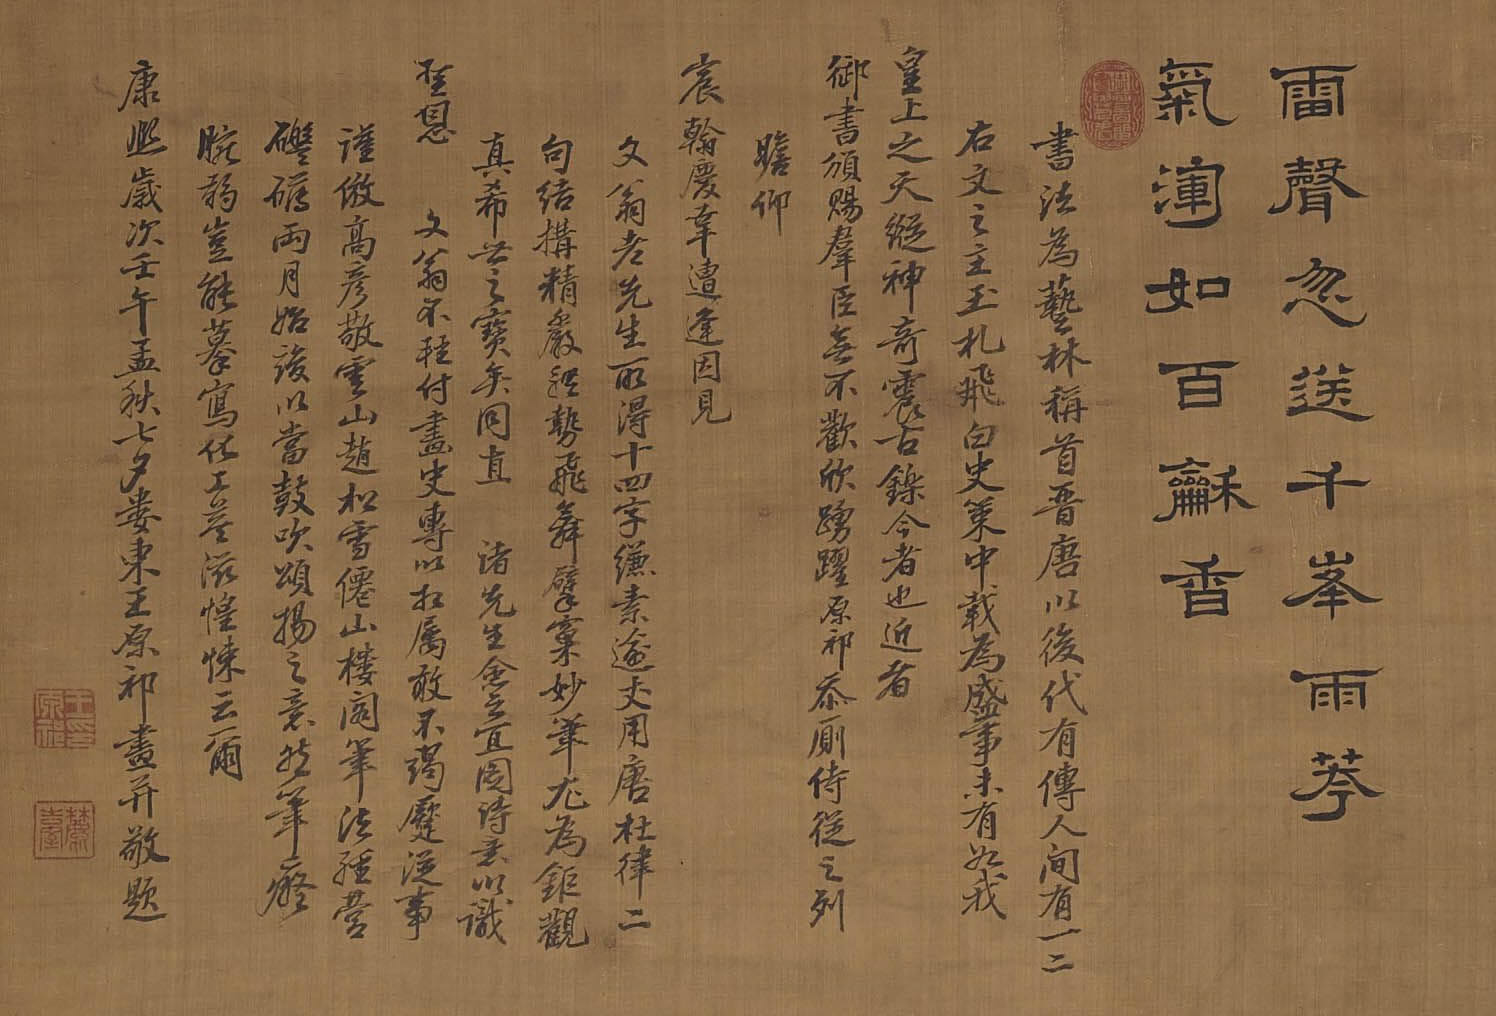 雷聲忽送千峯雨荂
氣渾如百龢香
書法為藝林稱首晋唐以後代有傳人間有一二
右文之主玉札飛白史策中載為盛事未有如我
皇上之天縱神奇震古鑠今者也近者
御書頒賜羣臣無不歡欣踴躍原祁忝厠侍從之列
瞻仰
宸翰慶幸遭逢因見
文翁老先生所得十四字縑素逾丈用唐杜律二
句結搆精嚴體勢飛舞擘窠妙筆尤為鉅觀
真希世之寶矣同直 諸先生僉云宜圖詩意以識
聖恩 文翁不輕付畫史專以相屬敢不竭蹷從事
謹倣高彥敬雲山趙松雪僊山樓閣筆法經營
礴兩月始竣以當鼓吹頌揚之意然筆癡
腕弱豈能摹寫化工益滋惶悚云爾
康熙歲次壬午孟秋七夕婁東王原祁畫并敬題
王原祁印
麓臺